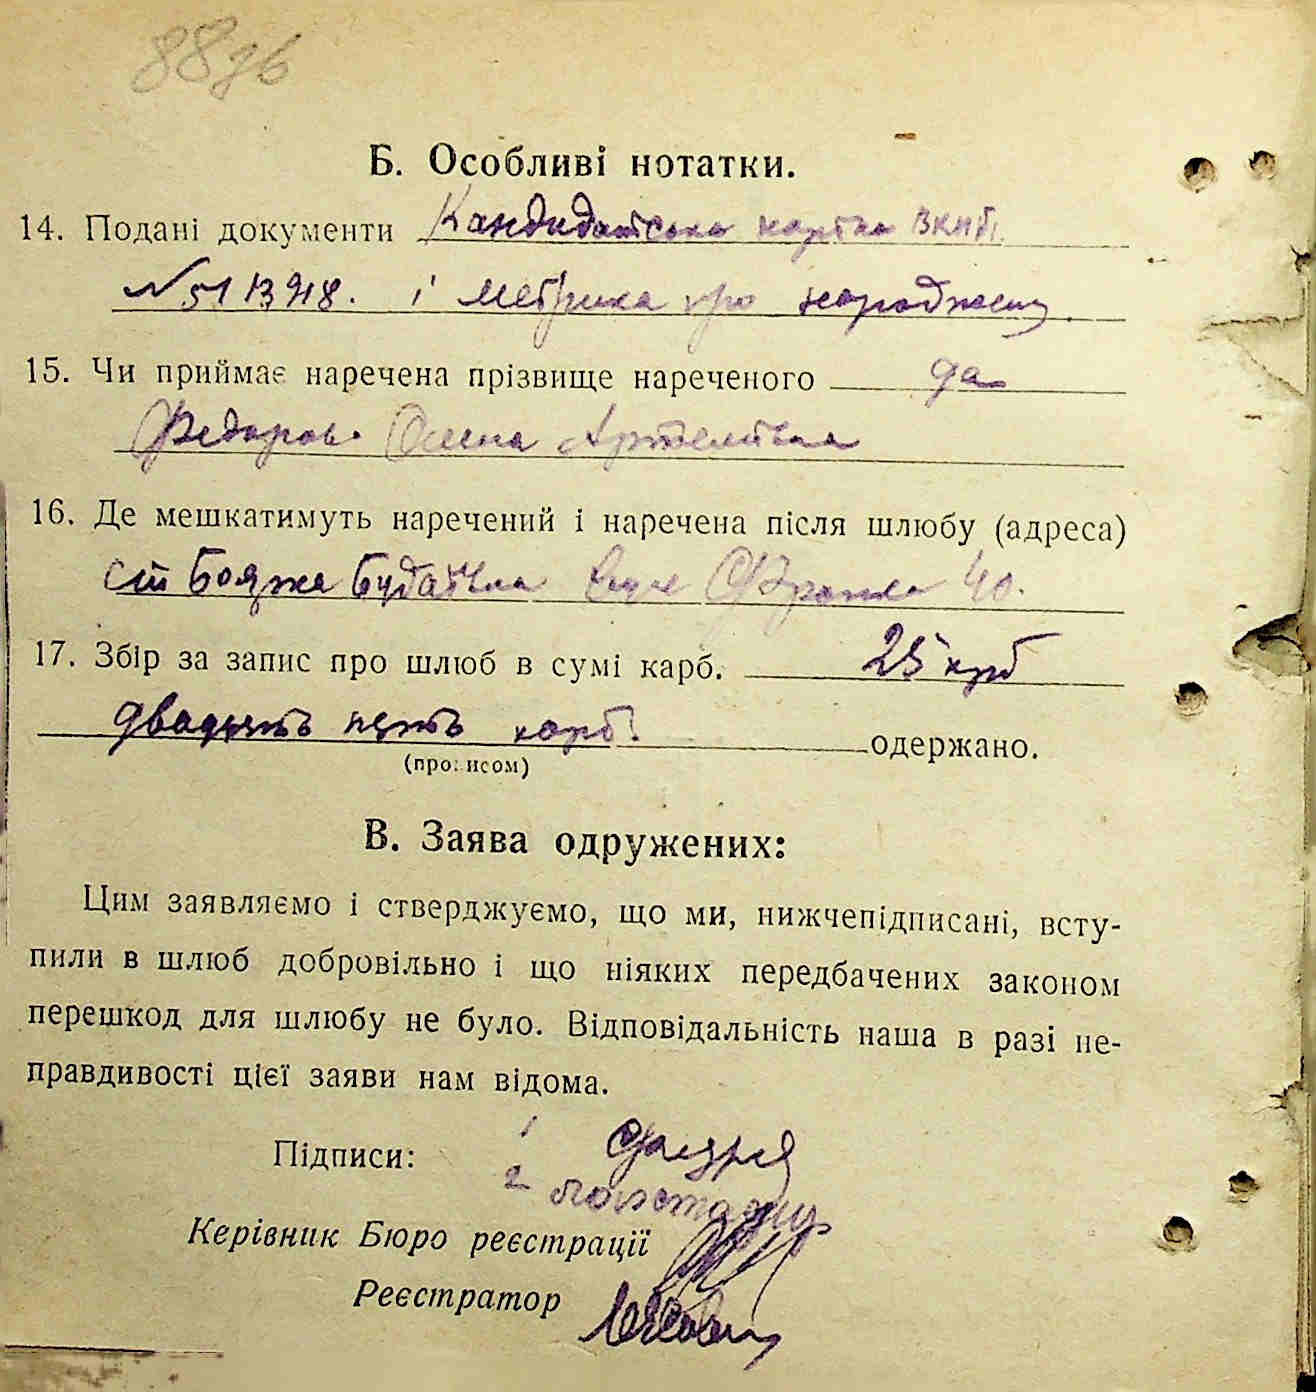 88
Б. Особливі нотатки.
14. Подані документи Кандидатська картка ВКПб
№ 5113918. і Метрика про народження
15. Чи приймає наречена прізвище нареченого да
Федорова Олена Артемівна
16. Де мешкатимуть наречений і наречена після шлюбу (адреса)
ст Боярка Будаївка вул Франка 40.
17. Збір за запис про шлюб в сумі карб. 25 крб
двадцять пять карб. одержано.
(прописом)
В. Заява одружених:
Цим заявляємо і стверджуємо, що ми, нижчепідписані, всту-
пили в шлюб добровільно і що ніяких передбачених законом
перешкод для шлюбу не було. Відповідальність наша в разі не-
правдивості цієї заяви нам відома.
Підписи: 1
2
Керівник Бюро реєстрації
Реєстратор